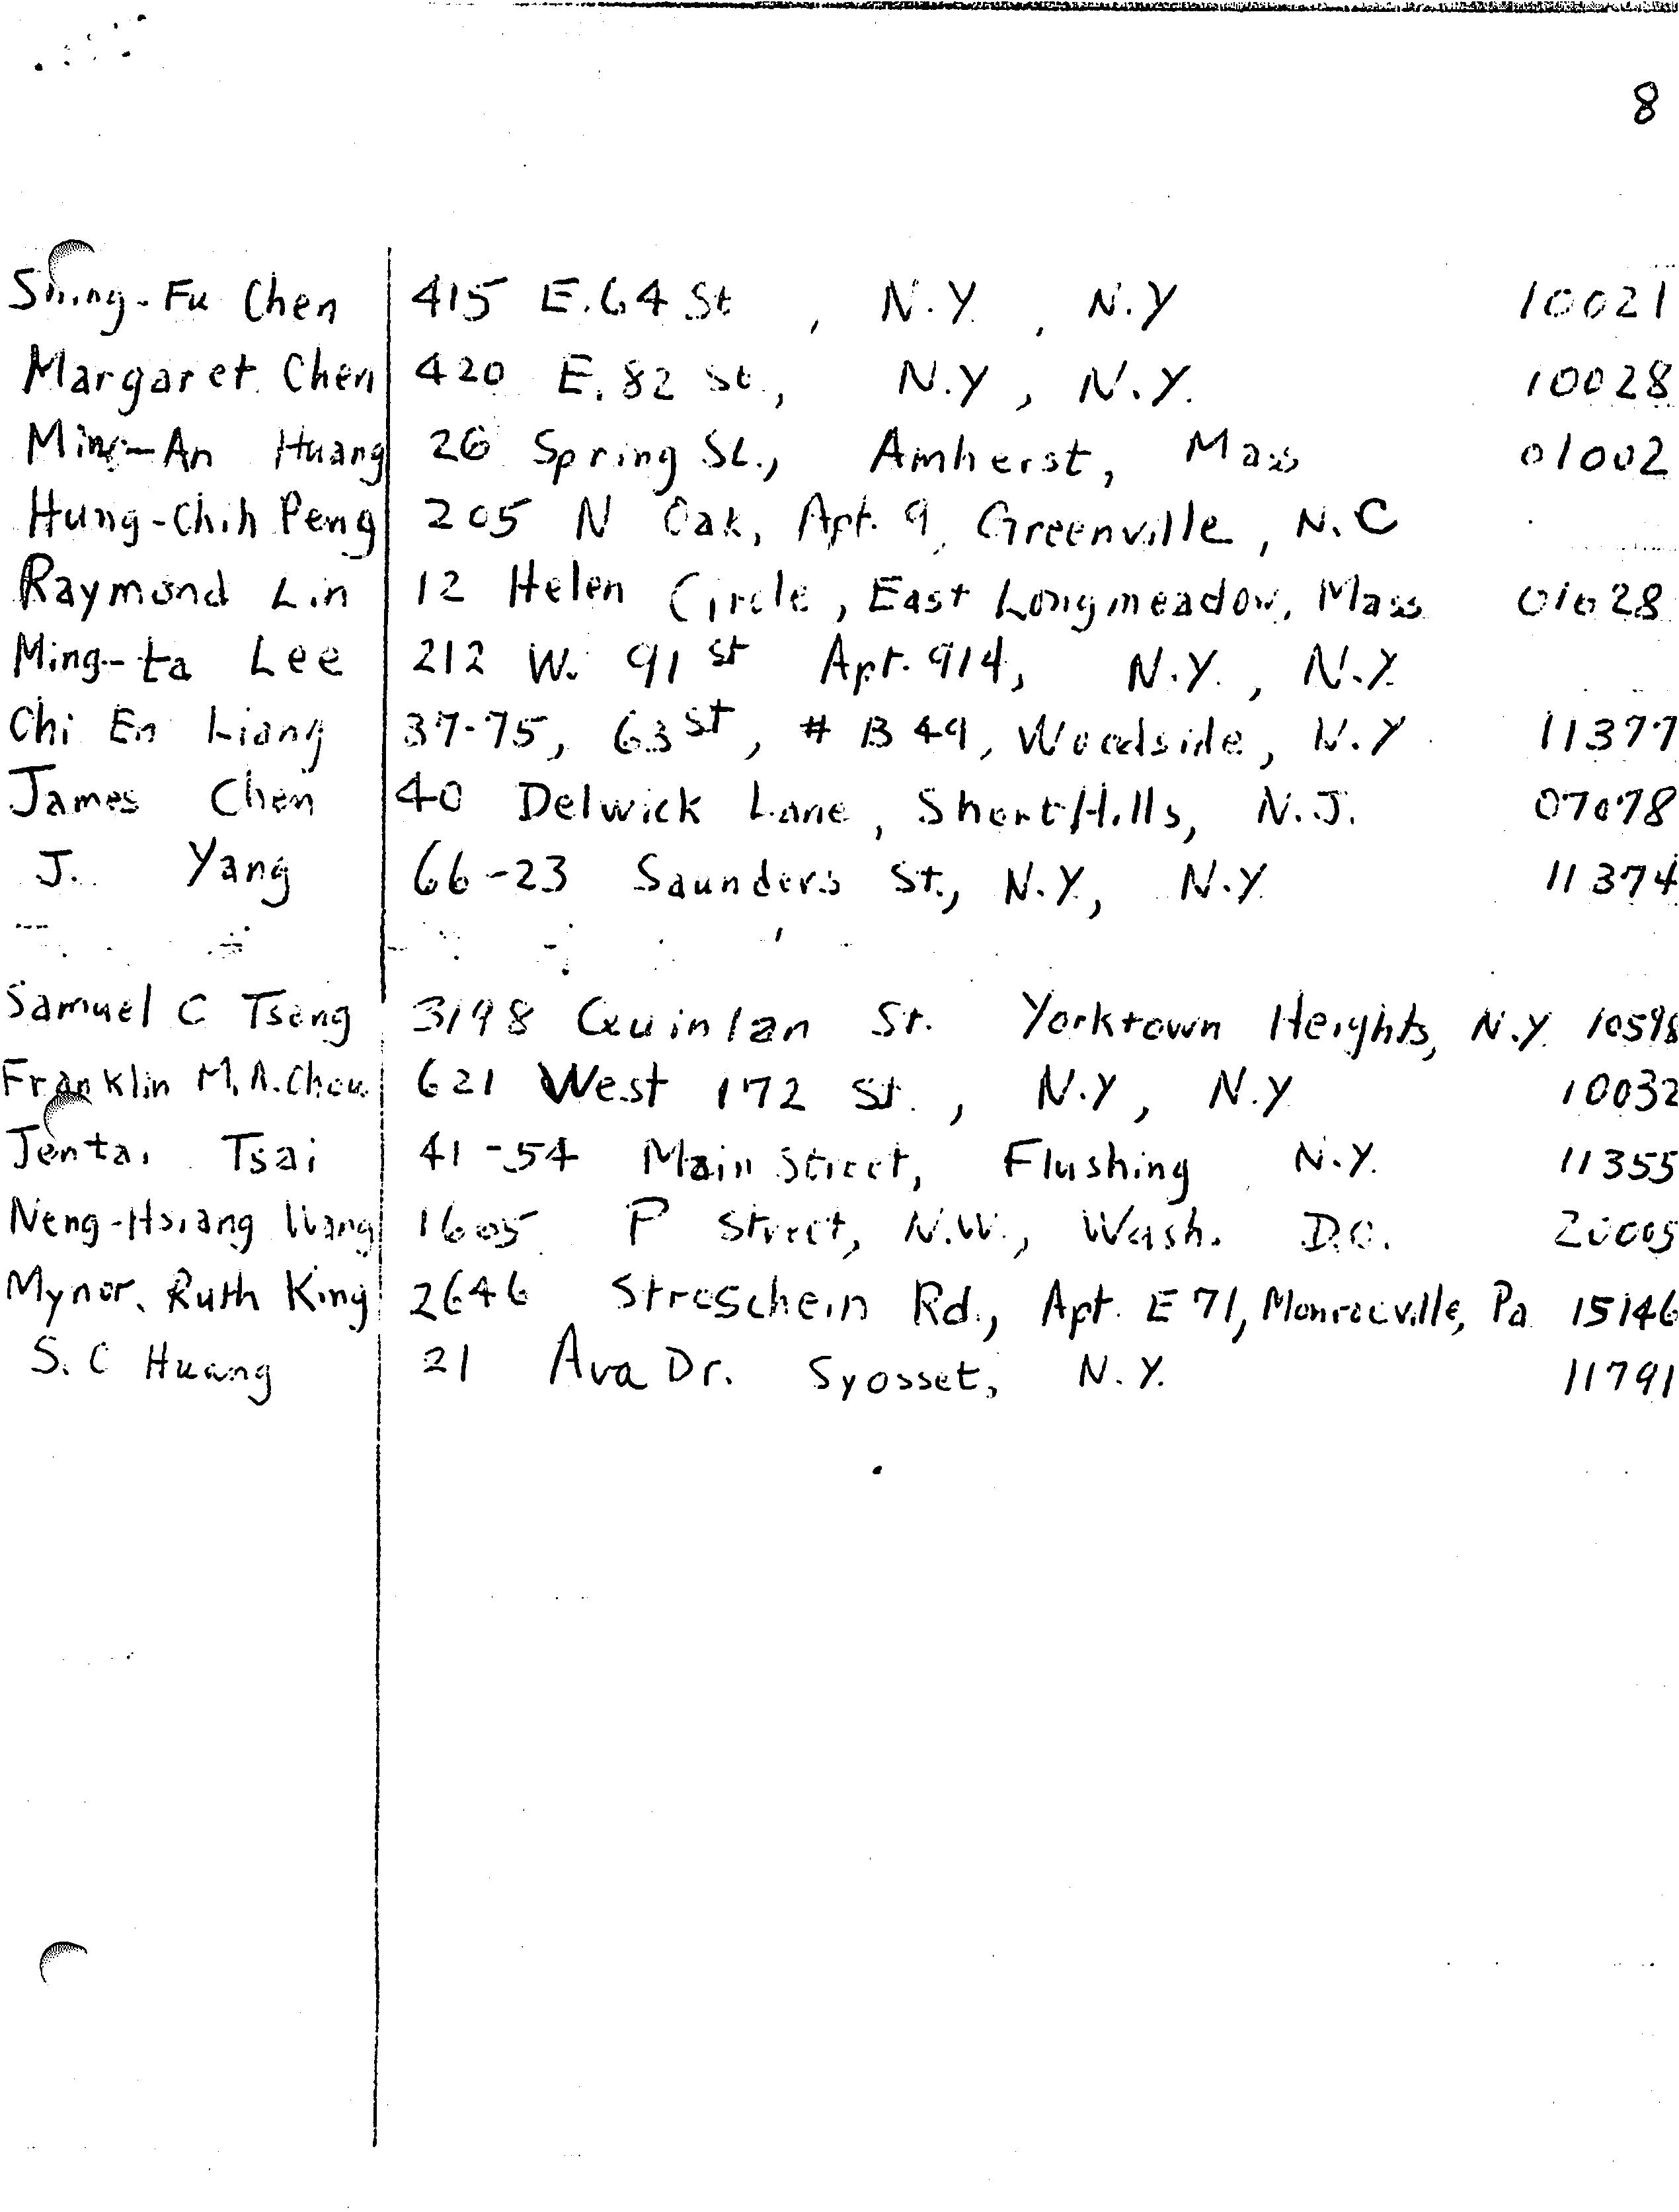 8
Shing-Fu Chen 415 E. 64 St , N.Y. , N.Y 10021
Margaret Chen 420 E. 82 St., N.Y , N.Y. 10028
Ming-An Huang 26 Spring St., Amherst, Mass 01002
Hung-Chih Peng 205 N Oak, Apt. 9, Greenville, N.C
Raymond Lin 12 Helen Circle, East Longmeadow, Mass 01028
Ming-ta Lee 212 W. 91 st Apt. 914, N.Y., N.Y.
Chi En Liang 37-75, 63 st, # B 49, Woodside, N.Y. 11377
James Chen 40 Delwick Lane, Short Hills, N.J. 07078
J. Yang 66-23 Saunders St., N.Y, N.Y 11374
Samuel C Tseng 3198 Quinlan St. Yorktown Heights, N.Y. 10598
Franklin M. A. Chou 621 West 172 St., N.Y, N.Y 10032
Jentai Tsai 41-54 Main Street, Flushing N.Y. 11355
Neng-Hsiang Wang 1605 P Street, N.W., Wash. D.C. 20005
Mynor. Ruth King 2646 Stroschein Rd., Apt. E 71, Monroeville, Pa 15146
S. C Huang 21 Ava Dr. Syosset, N.Y. 11791